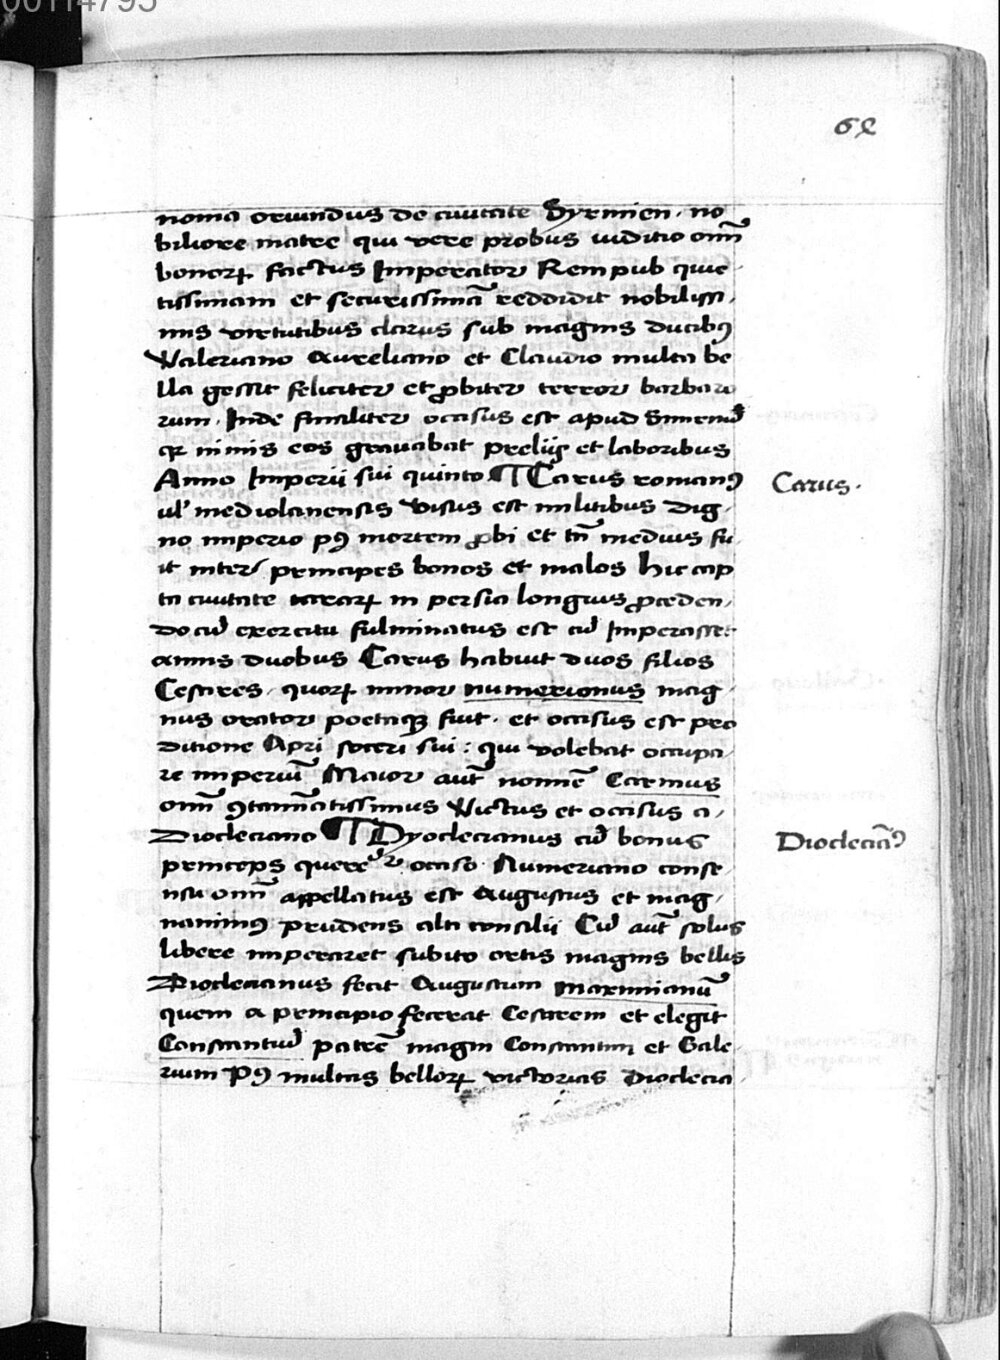 00114795
62
nonia oriundus de ciuitate Syrmien. no
biliore matre qui vere probus iuditio om̅
bonoꝝ factus Imperator Rem pub quie
tissimam et securissimā reddidit nobilissi
mis virtutibus clarus sub magnis ducibꝰ
Valeriano Aureliano et Claudio multa be
lla gessit feliciter et ꝓbiter terror barbaro
rum. Inde finaliter occisus est apud
nimis eos grauabat preliis et laboribus
Anno Imperii sui quinto ¶ Carus romanꝰ
Carus.
ul' mediolanensis visus est militibus dig
no imperio pꝰ mortem ꝓbi et tn̅ medius fu
it inter principes bonos et malos hic cap
ta ciuitate in persia longius ꝓceden
do cū exercitu fulminatus est cū Imperasset
annis duobus Carus habuit duos filios
Cesares. quoꝝ minor numerionus mag
nus orator poetaqꝫ fuit. et occisus est pro
ditione Apri soceri sui: qui volebat occupa
re imperiū Maior aut̅ nomine̅ Carinus
om̅ ꝯtaminatissimus Victus et occisus a
Diocleciano ¶ Dyoclecianus cū bonus
Dioclecianꝰ
princeps quereret̉ occiso Numeriano conse
nsu om̅ appellatus est Augustus et mag
nanimꝰ prudens alti consilii Cū aut̅ solus
libere imperaret subito ortis magnis bellis
Dioclecianus fecit Augustum maximianū
quem a principio fecerat Cesarem et elegit
Constantiū patrē magni Constantini et Gale
rium Pꝰ multas belloꝝ victorias Dioclecia